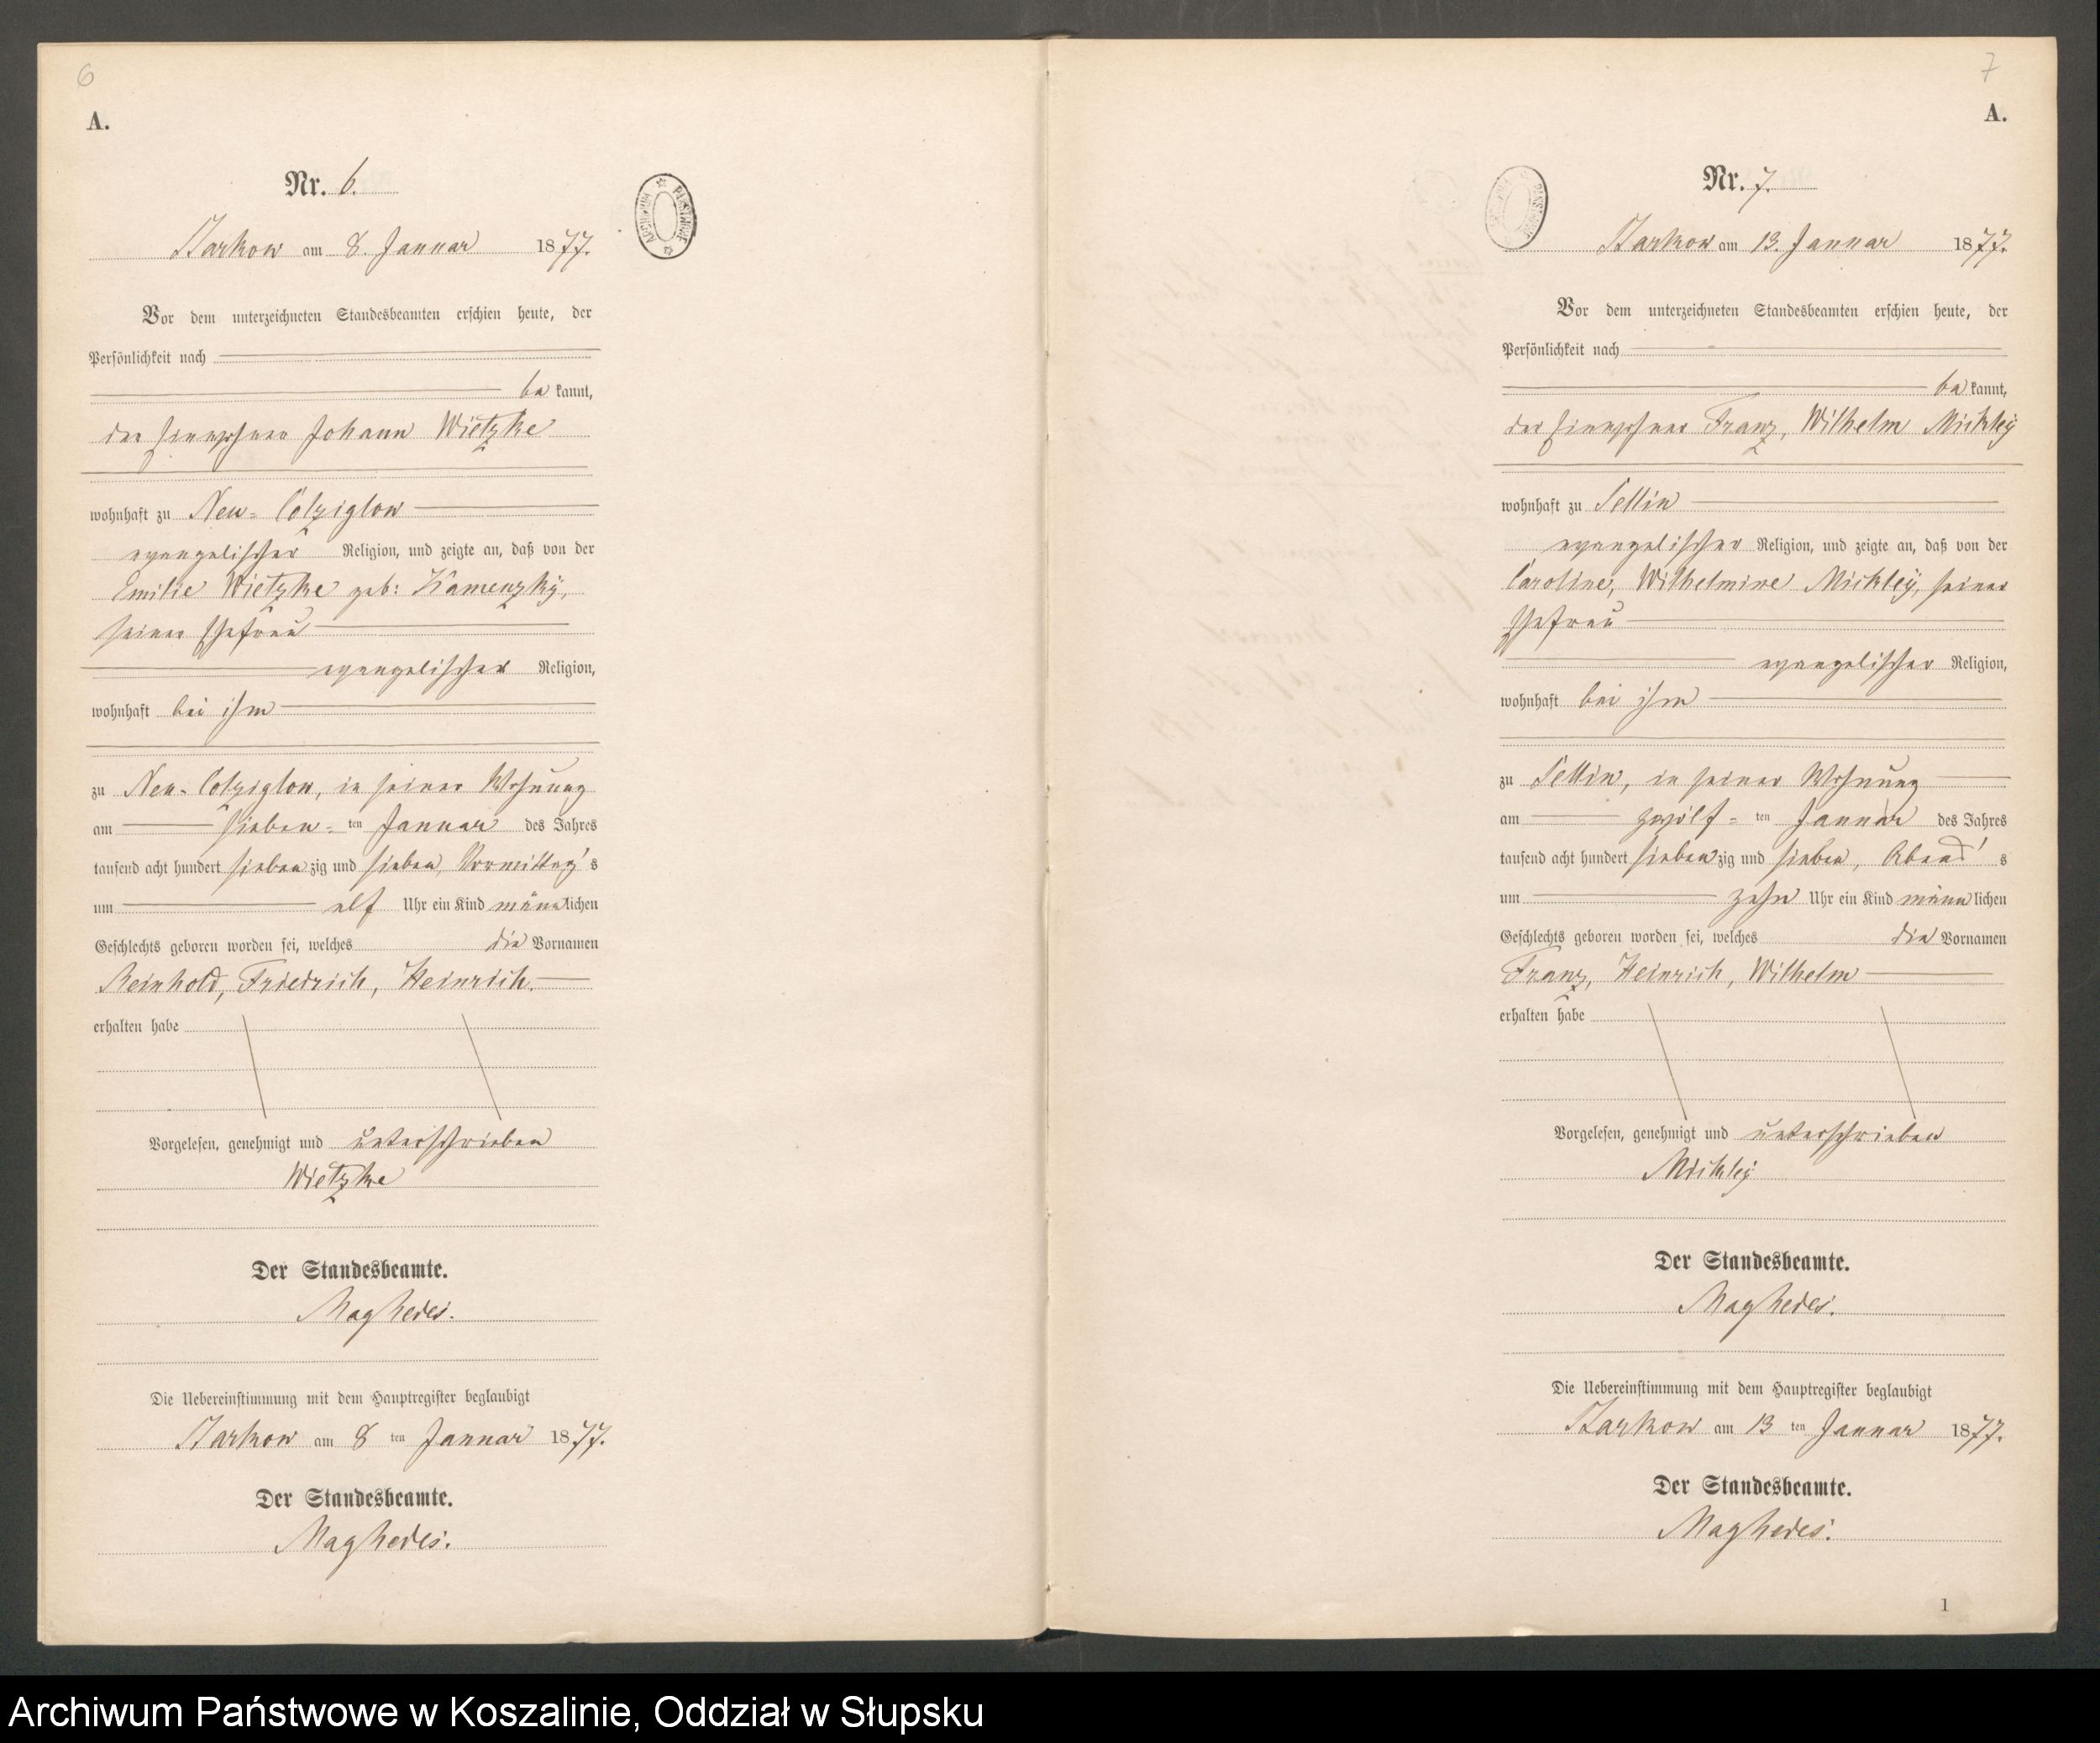 6
A.
Nr. 6.
ARCHIWUM PAŃSTWOWE
Starkow am 8. Januar 1877.
Vor dem unterzeichneten Standesbeamten erschien heute, der
Persönlichkeit nach
be kannt,
der Einwohner Johann Wietzke
wohnhaft zu Neu-Colziglow
evangelischer Religion, und zeigte an, daß von der
Emilie Wietzke geb: Kamenzky,
seiner Ehefrau
evangelischer Religion,
wohnhaft bei ihm
zu Neu-Colziglow, in seiner Wohnung
am sieben-ten Januar des Jahres
tausend acht hundert siebenzig und sieben, Vormittag's
um elf Uhr ein Kind männlichen
Geschlechts geboren worden sei, welches die Vornamen
Reinhold, Friedrich, Heinrich.
erhalten habe
Vorgelesen, genehmigt und unterschrieben
Wietzke
Der Standesbeamte.
Die Uebereinstimmung mit dem Hauptregister beglaubigt
Starkow am 8 ten Januar 1877.
Der Standesbeamte.
7
A.
Nr. 7.
Starkow am 13. Januar 1877.
Vor dem unterzeichneten Standesbeamten erschien heute, der
Persönlichkeit nach
be kannt,
der Einwohner Franz, Wilhelm Mickley
wohnhaft zu Sellin
evangelischer Religion, und zeigte an, daß von der
Caroline, Wilhelmine Mickley, seiner
Ehefrau
evangelischer Religion,
wohnhaft bei ihm
zu Sellin, in seiner Wohnung
am zwölf-ten Januar des Jahres
tausend acht hundert siebenzig und sieben, Abend's
um zehn Uhr ein Kind männlichen
Geschlechts geboren worden sei, welches die Vornamen
Franz, Heinrich, Wilhelm
erhalten habe
Vorgelesen, genehmigt und unterschrieben
Mickley
Der Standesbeamte.
Die Uebereinstimmung mit dem Hauptregister beglaubigt
Starkow am 13 ten Januar 1877.
Der Standesbeamte.
1
Archiwum Państwowe w Koszalinie, Oddział w Słupsku